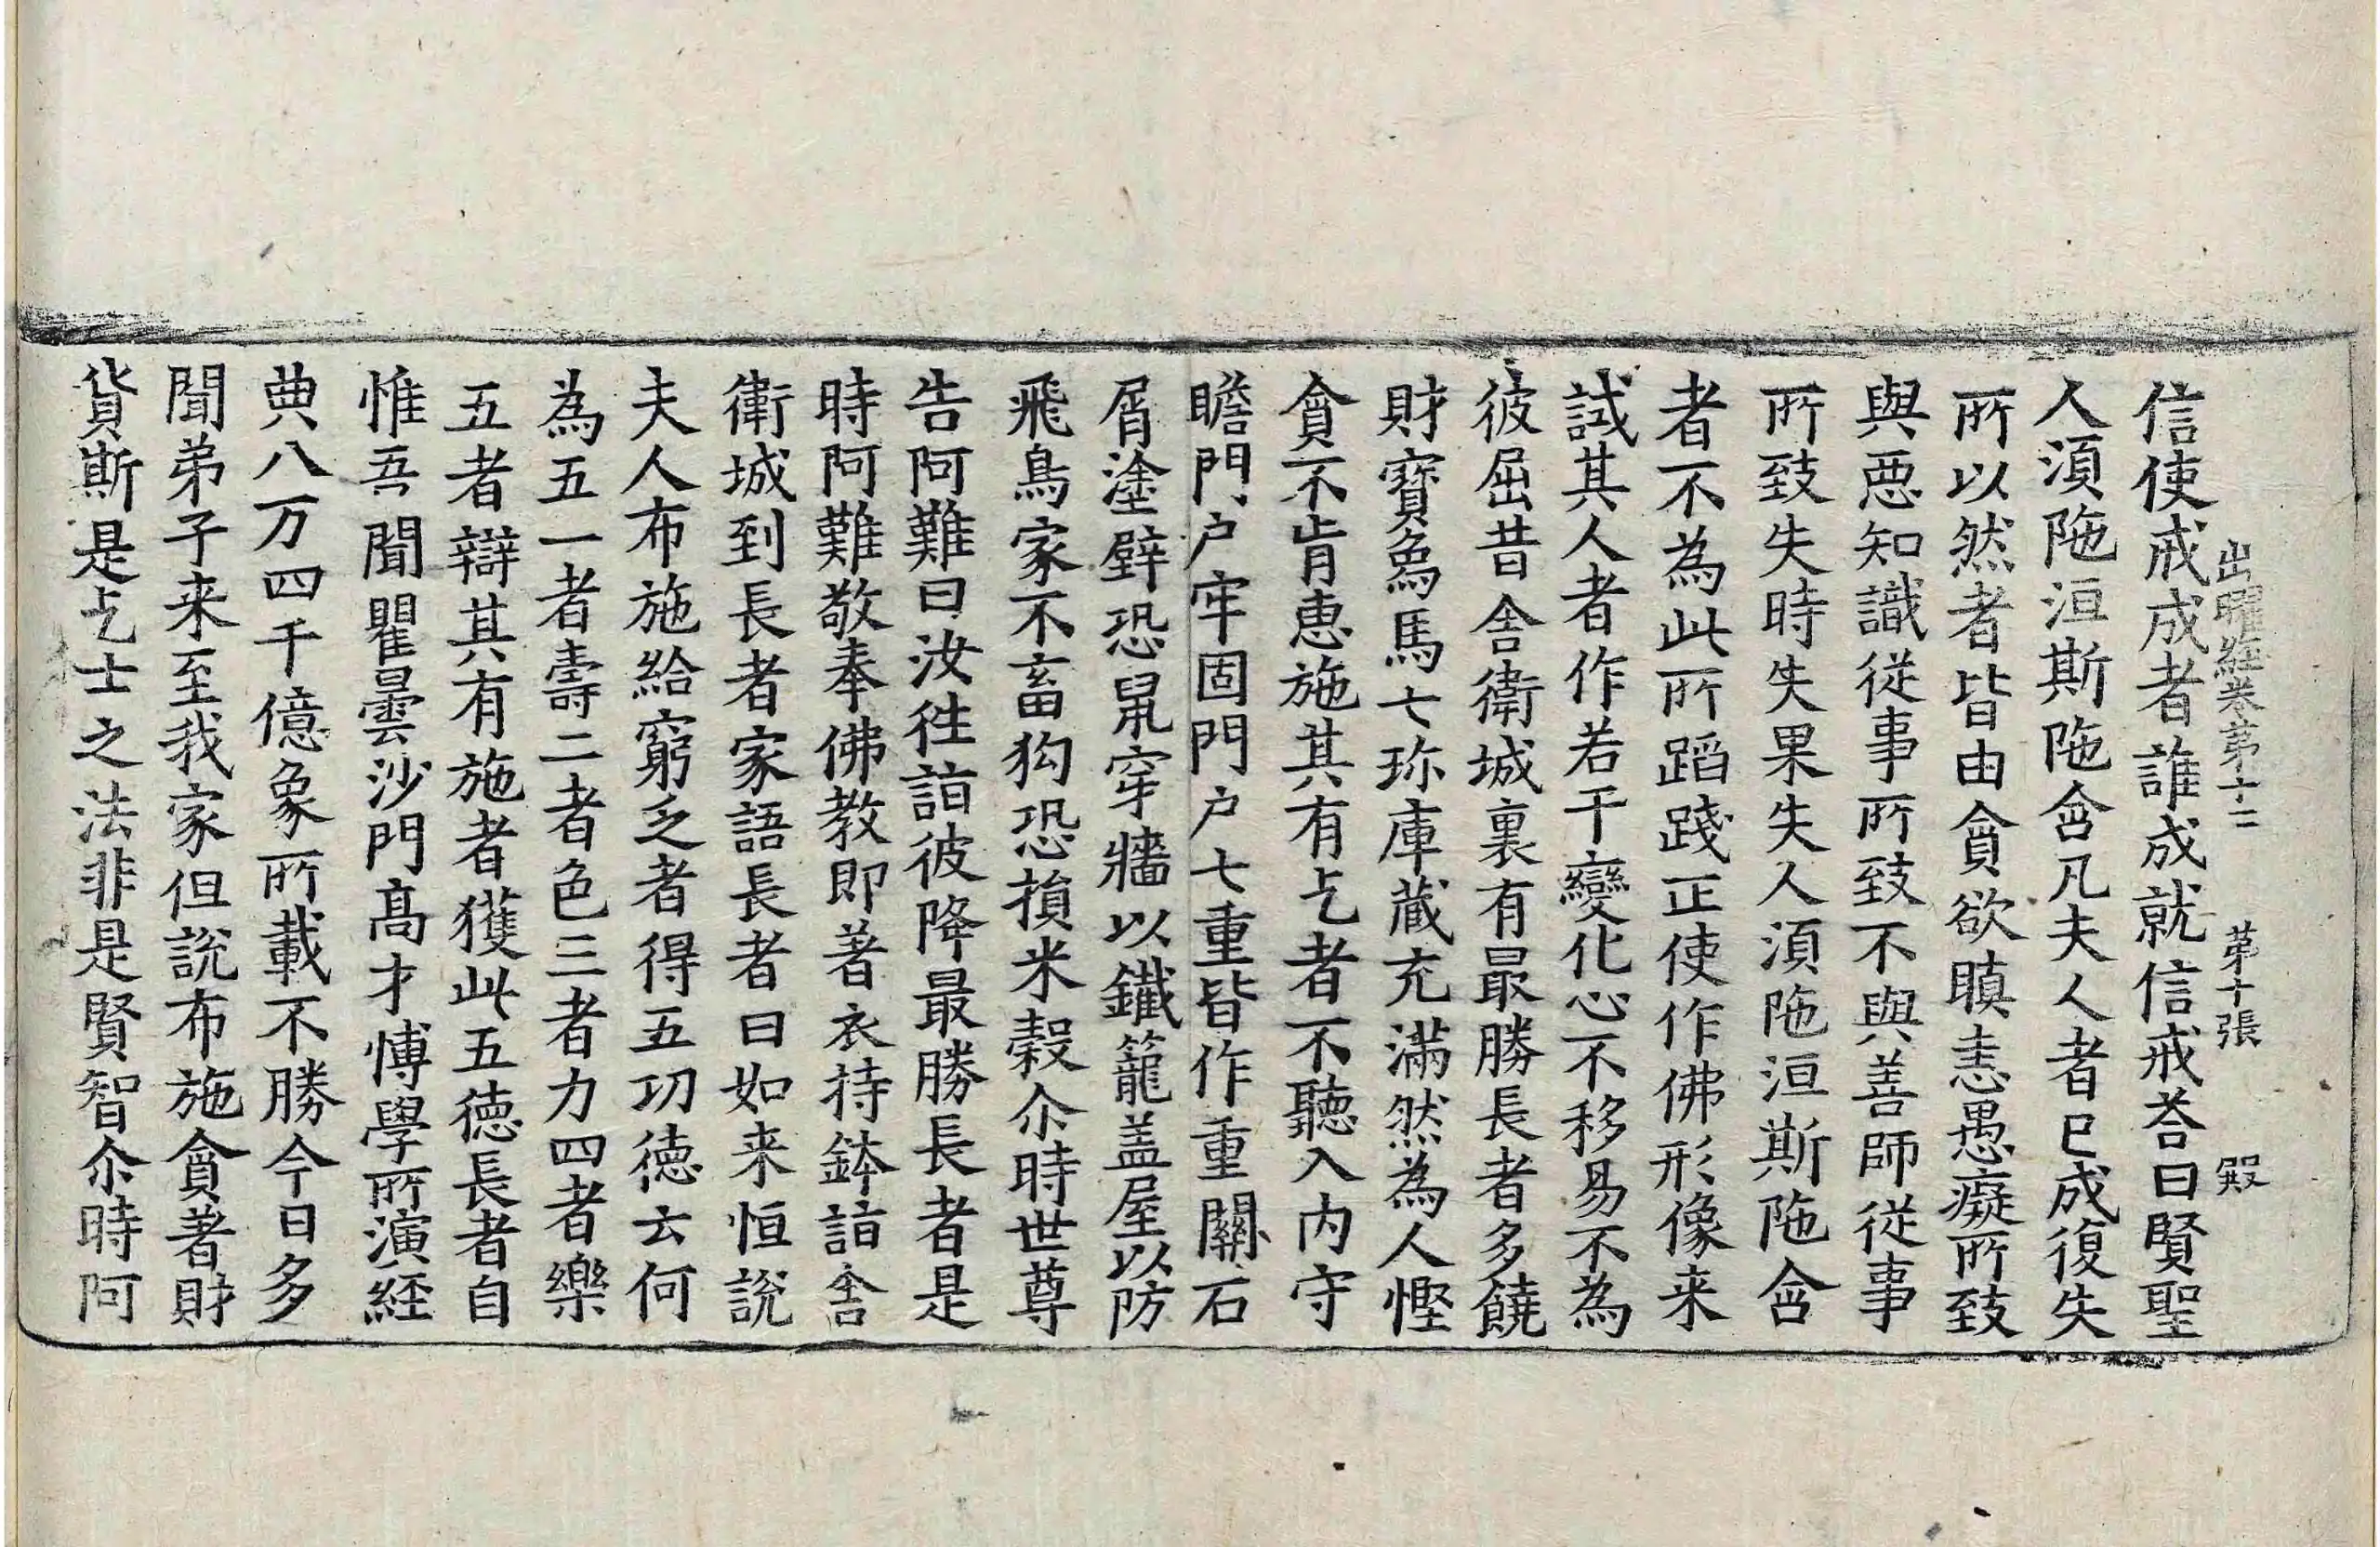 出曜經卷第十二　第十張　殿
信使戒成者誰成就信戒荅曰賢聖
人湏陁洹斯陁含凡夫人者已成復失
所以然者皆由貪欲瞋恚愚癡所致
與惡知識從事所致不與善師從事
所致失時失果失人湏陁洹斯陁含
者不為此所蹈踐正使作佛形像来
試其人者作若干變化心不移易不為
彼屈昔舍衛城裏有最勝長者多饒
財寶象馬七珎庫藏充滿然為人慳
貪不肯惠施其有乞者不聽入内守
瞻門户牢固門户七重皆作重關石
屑塗壁恐鼠穿牆以鐵籠盖屋以防
飛鳥家不畜狗恐損米穀尒時世尊
告阿難曰汝徃詣彼降最勝長者是
時阿難敬奉佛教即著衣持鉢詣舍
衛城到長者家語長者曰如来恒說
夫人布施給窮乏者得五功德云何
為五一者壽二者色三者力四者樂
五者辯其有施者獲此五德長者自
惟吾聞瞿曇沙門髙才愽學所演經
典八万四千億象所載不勝今日多
聞弟子来至我家但說布施貪著財
貨斯是乞士之法非是賢智尒時阿